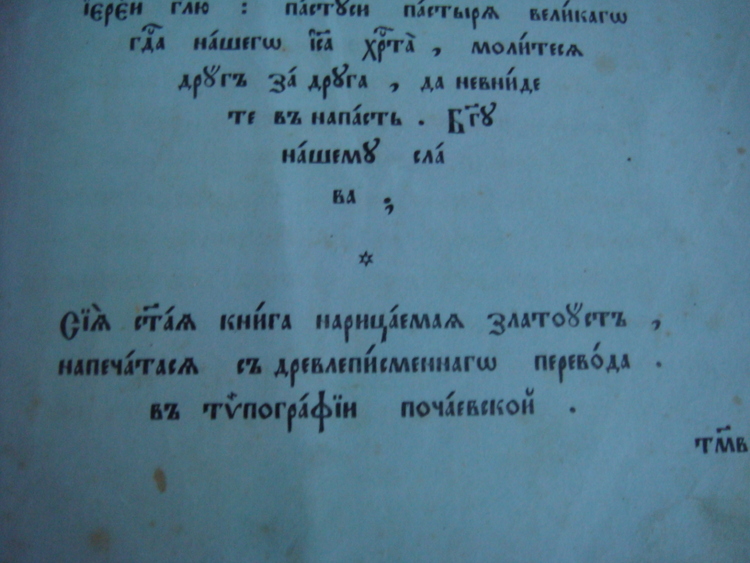 іерє́и глю : па́стꙋси па́стырѧ вели́кагѡ
гдⷭ҇а на́шегѡ і҆са хрⷭ҇та̀ , моли́тесѧ
дрꙋ́гъ за́ дрꙋга , да невни́де
те въ напа́сть . Бг҃ꙋ
на́шемꙋ сла́
ва ;
Сїѧ̀ ст҃а́ѧ кни́га нарица́емаѧ златоꙋ́стъ ,
напеча́тасѧ съ древлепи́сменнагѡ перево́да .
въ тѷпогра́фїи поча́евской .
тмⷭ҇в